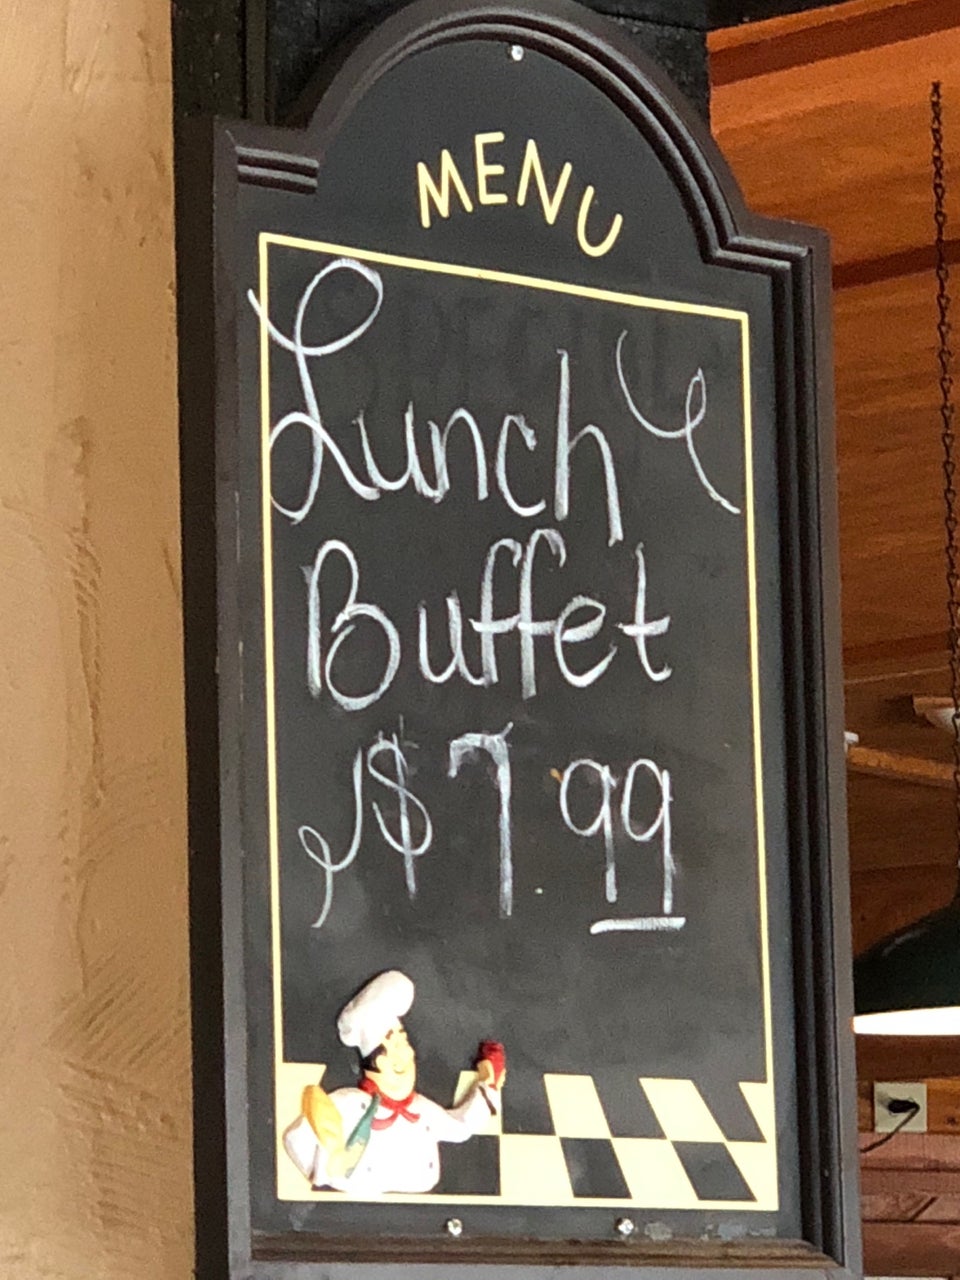 MENU
Lunch
Buffet
$7.99